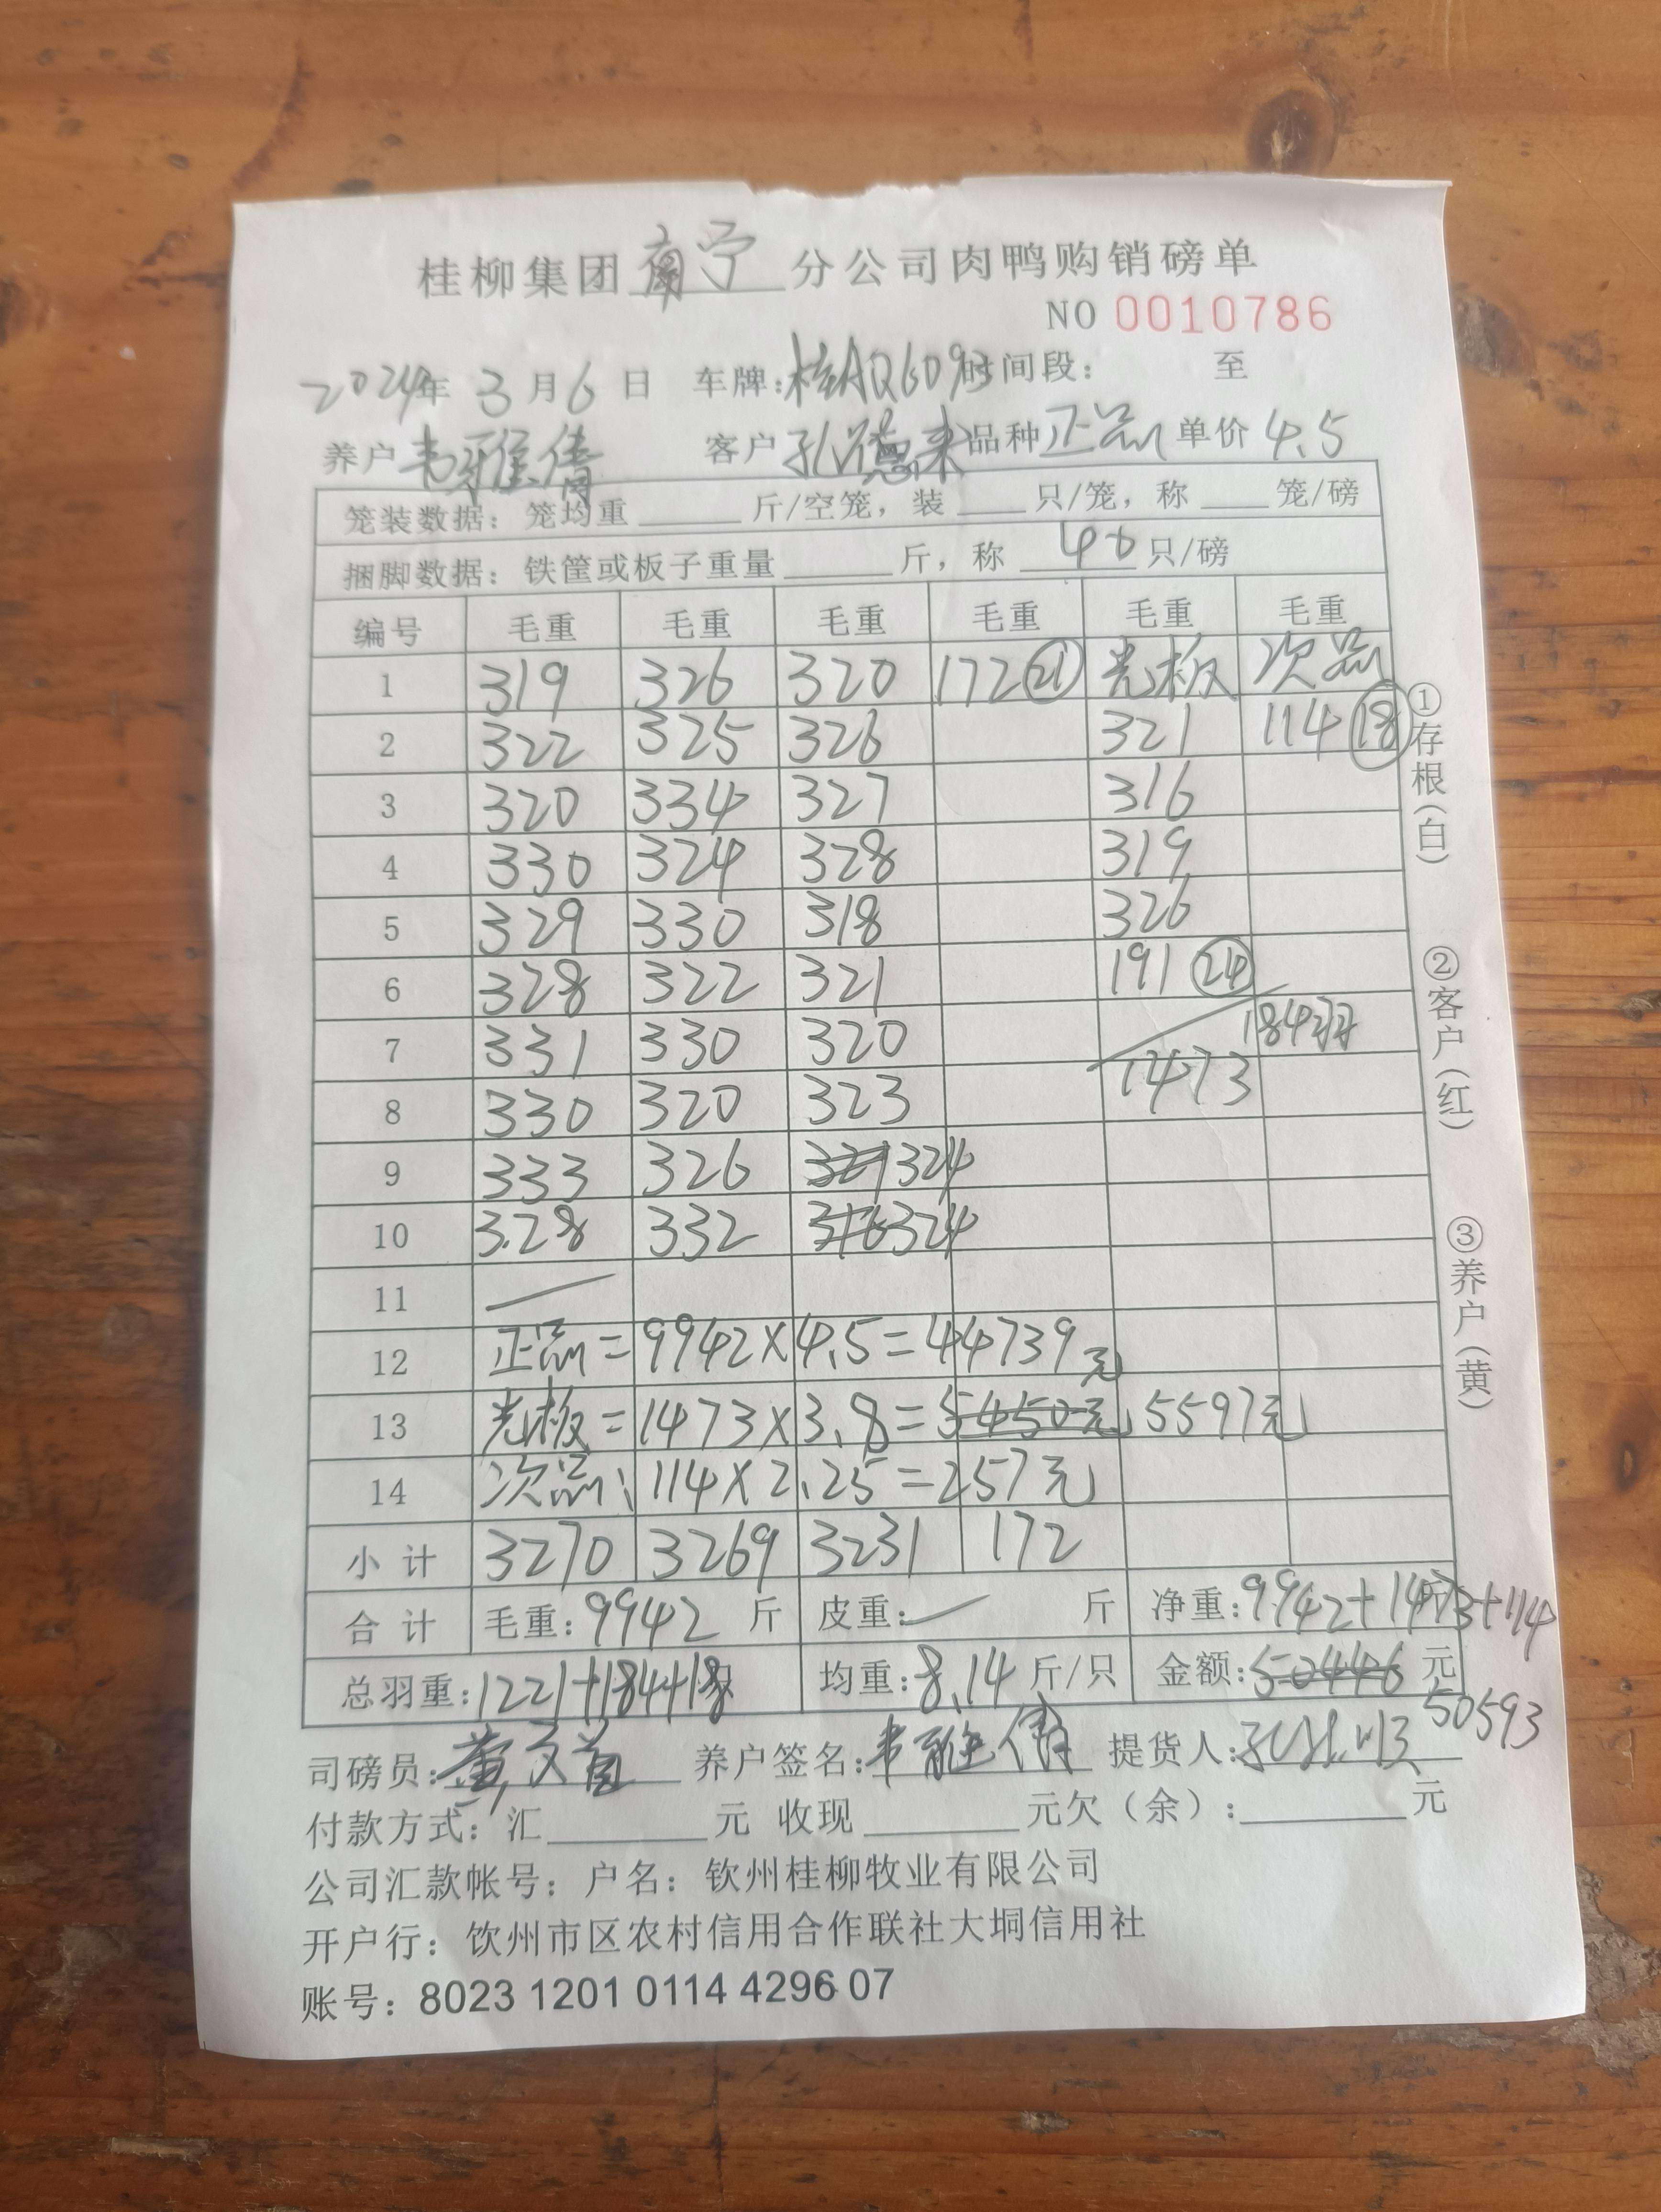 桂柳集团南宁分公司肉鸭购销磅单
NO 0010786
2024年 3月6日 车牌:桂AQ6093 时间段: 至
养户 韦雅倩 客户 孔德来 品种 正品 单价 4.5
笼装数据: 笼均重 斤/空笼, 装 只/笼, 称 笼/磅
捆脚数据: 铁筐或板子重量 斤, 称 40 只/磅
编号 毛重 毛重 毛重 毛重 毛重 毛重
1 319 326 320 172 21 光板 次品
2 322 325 326 321 114 18
3 320 334 327 316
4 330 324 328 319
5 329 330 318 326
6 328 322 321 191 24
7 331 330 320 184羽
8 330 320 323 1473
9 333 326 324
10 328 332 324
11 —
12 正品=9942×4.5=44739元
13 光板=1473×3.8=5450元 5597元
14 次品: 114×2.25=257元
小计 3270 3269 3231 172
合计 毛重:9942 斤 皮重:— 斤 净重:9942+1473+114
总羽重:1221+184+18 均重:8.14 斤/只 金额:50446 元
50593
司磅员: 养户签名:韦雅倩 提货人:
付款方式: 汇 元 收现 元欠(余): 元
公司汇款帐号: 户名: 钦州桂柳牧业有限公司
开户行: 饮州市区农村信用合作联社大垌信用社
账号: 8023 1201 0114 4296 07
①存根(白)
②客户(红)
③养户(黄)